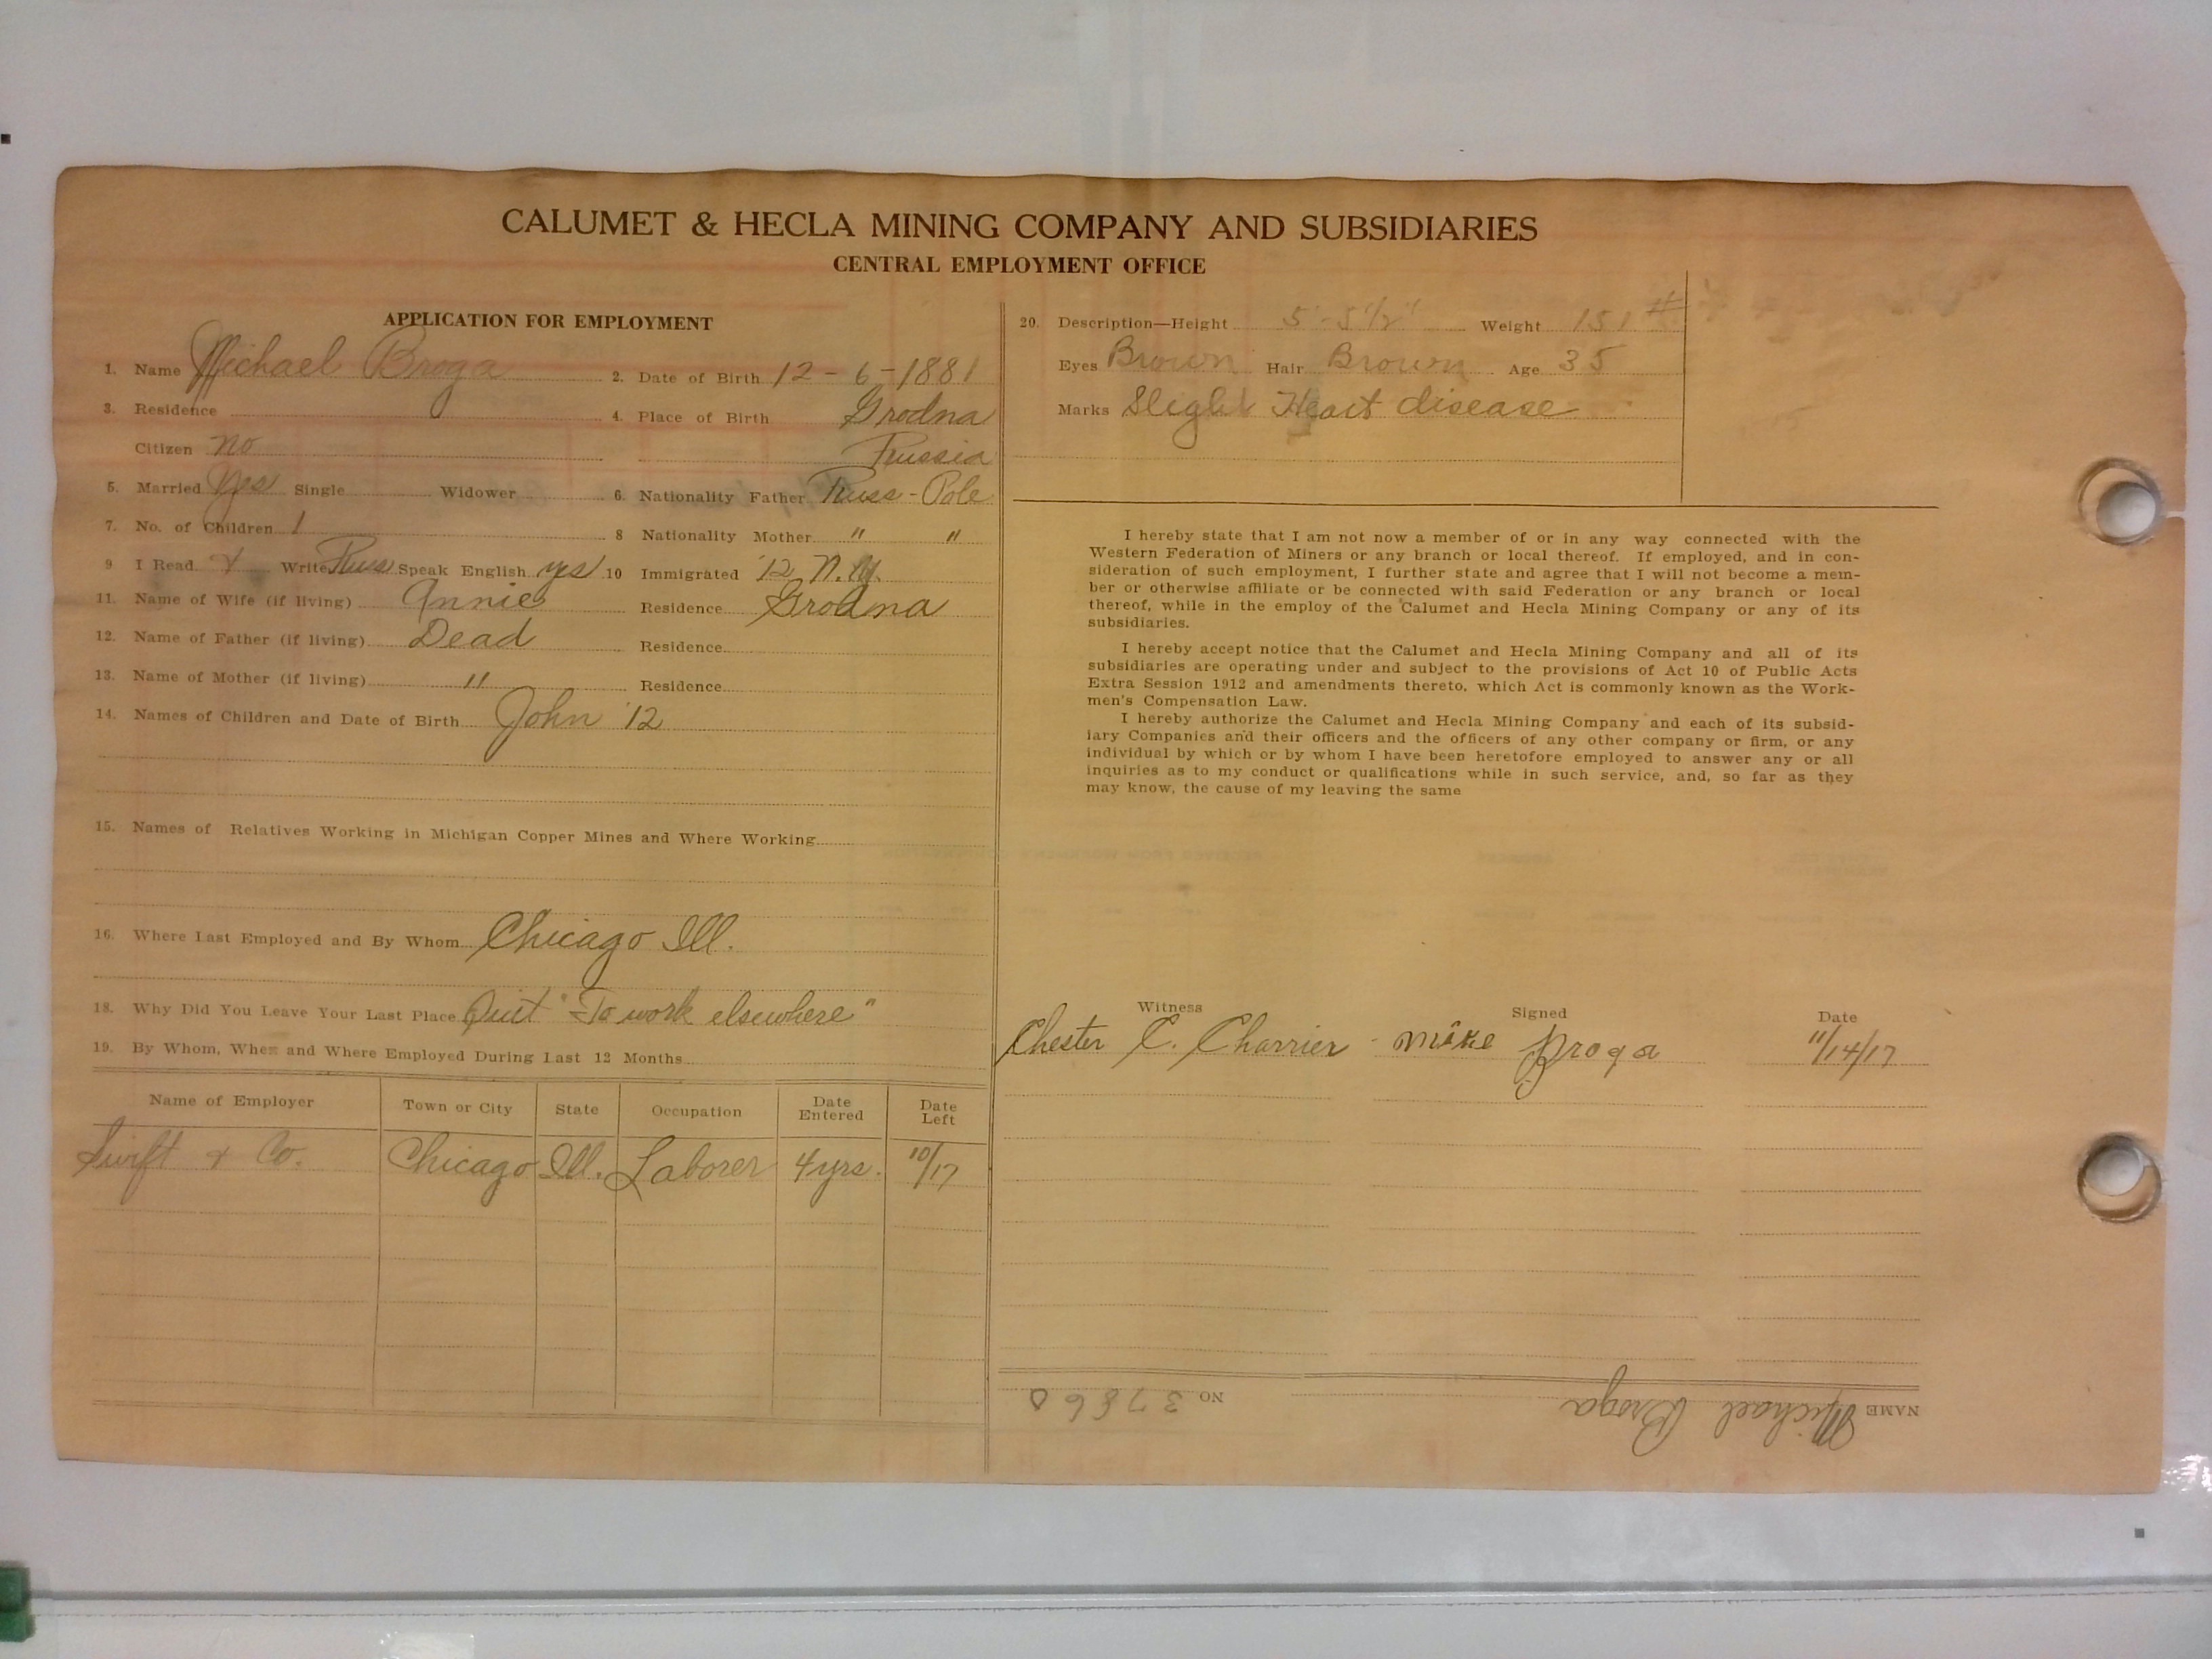 CALUMET & HECLA MINING COMPANY AND SUBSIDIARIES
CENTRAL EMPLOYMENT OFFICE
APPLICATION FOR EMPLOYMENT
1. Name Michael Broga 2. Date of Birth 12-6-1881
3. Residence 4. Place of Birth Grodna
Citizen no Russia
5. Married Yes Single Widower 6. Nationality Father Russ-Pole
7. No. of Children 1 8 Nationality Mother " "
9 I Read & Write Russ Speak English yes 10 Immigrated '12 N.Y.
11. Name of Wife (if living) Annie Residence Grodna
12. Name of Father (if living) Dead Residence
13. Name of Mother (if living) " Residence
14. Names of Children and Date of Birth John '12
15. Names of Relatives Working in Michigan Copper Mines and Where Working
16. Where Last Employed and By Whom Chicago Ill.
18. Why Did You Leave Your Last Place Quit "To work elsewhere"
19. By Whom, When and Where Employed During Last 12 Months
Name of Employer Town or City State Occupation Date Entered Date Left
Swift & Co. Chicago Ill. Laborer 4 yrs. 10/17
20. Description—Height 5'-5 1/2" Weight 151 #
Eyes Brown Hair Brown Age 35
Marks Slight Heart disease
I hereby state that I am not now a member of or in any way connected with the
Western Federation of Miners or any branch or local thereof. If employed, and in con-
sideration of such employment, I further state and agree that I will not become a mem-
ber or otherwise affiliate or be connected with said Federation or any branch or local
thereof, while in the employ of the Calumet and Hecla Mining Company or any of its
subsidiaries.
I hereby accept notice that the Calumet and Hecla Mining Company and all of its
subsidiaries are operating under and subject to the provisions of Act 10 of Public Acts
Extra Session 1912 and amendments thereto, which Act is commonly known as the Work-
men's Compensation Law.
I hereby authorize the Calumet and Hecla Mining Company and each of its subsid-
iary Companies and their officers and the officers of any other company or firm, or any
individual by which or by whom I have been heretofore employed to answer any or all
inquiries as to my conduct or qualifications while in such service, and, so far as they
may know, the cause of my leaving the same
Witness Signed Date
Chester C. Charrier - Mike Broga 11/14/17
NAME Michael Broga NO 37860